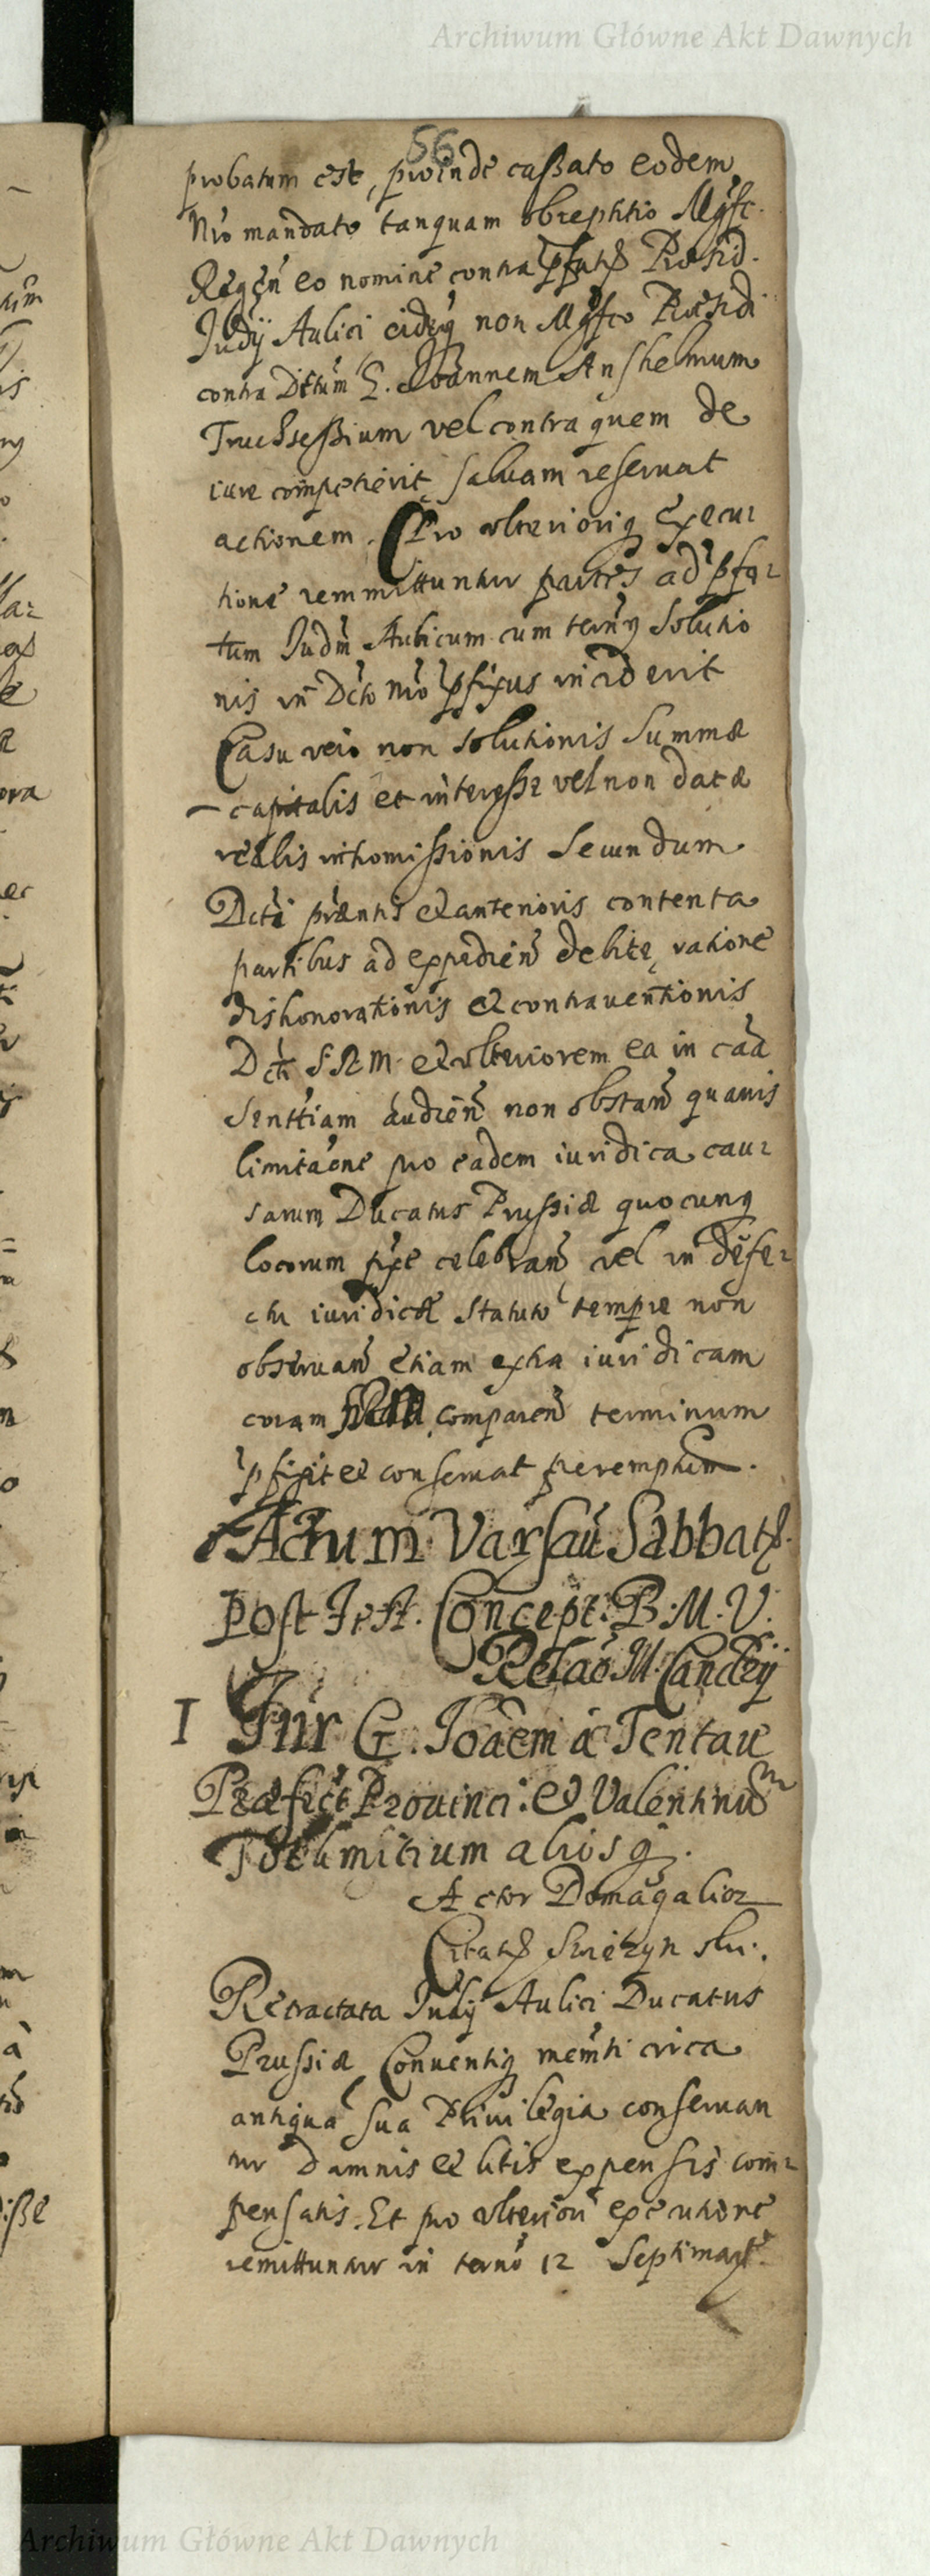 Archiwum Główne Akt Dawnych
56
probatum est, proinde cassato eodem
Nro mandato tanquam obreptitio Mgfc.
Regen eo nomine contra pfatus Præsid.
Judÿ Aulici eidemq non Mgfco Præsidi
contra Dictum G. Joannem Anshelmum
Truchsessium vel contra quem de
iure competierit salvam reservat
actionem. Pro ulteriorig Execu-
tione remmittuntur partes ad pfa-
tum Judm Aulicum cum termg solutio
nis in Dcto nro pfixus inciderit
Casu vero non solutionis Summæ
capitalis et interesse vel non datæ
realis intromissionis secundum
Dcti præntis et anterioris contenta
partibus ad expedien debite, ratione
dishonorationis et contraventionis
Dcti S R M et ulteriorem ea in caa
senttiam audien non obstan quavis
limitaone pro eadem iuridica cau-
sarum Ducatus Prussiæ quocung
locorum fixe celebran vel in defe-
ctu iuridicæ statuto tempre non
observan etiam extra iuridicam
coram comparen terminum
pfigit et conservat peremptm.
Actum Varsaū Sabbat
post Fest. Concept: B. M. V.
Relao M. Cancÿ
I Jnr G. Joaem a Tentau
Præfict Provinci: et Valentinum
aliosq.
Actor
Citatus
Retractata Judÿ Aulici Ducatus
Prussiæ Conventiq memti circa
antiqua sua Privilegia conservan
tur damnis et litis expensis com-
pensatis. Et pro ulteriori executione
remittuntur in termo 12 Septimar.
Archiwum Główne Akt Dawnych